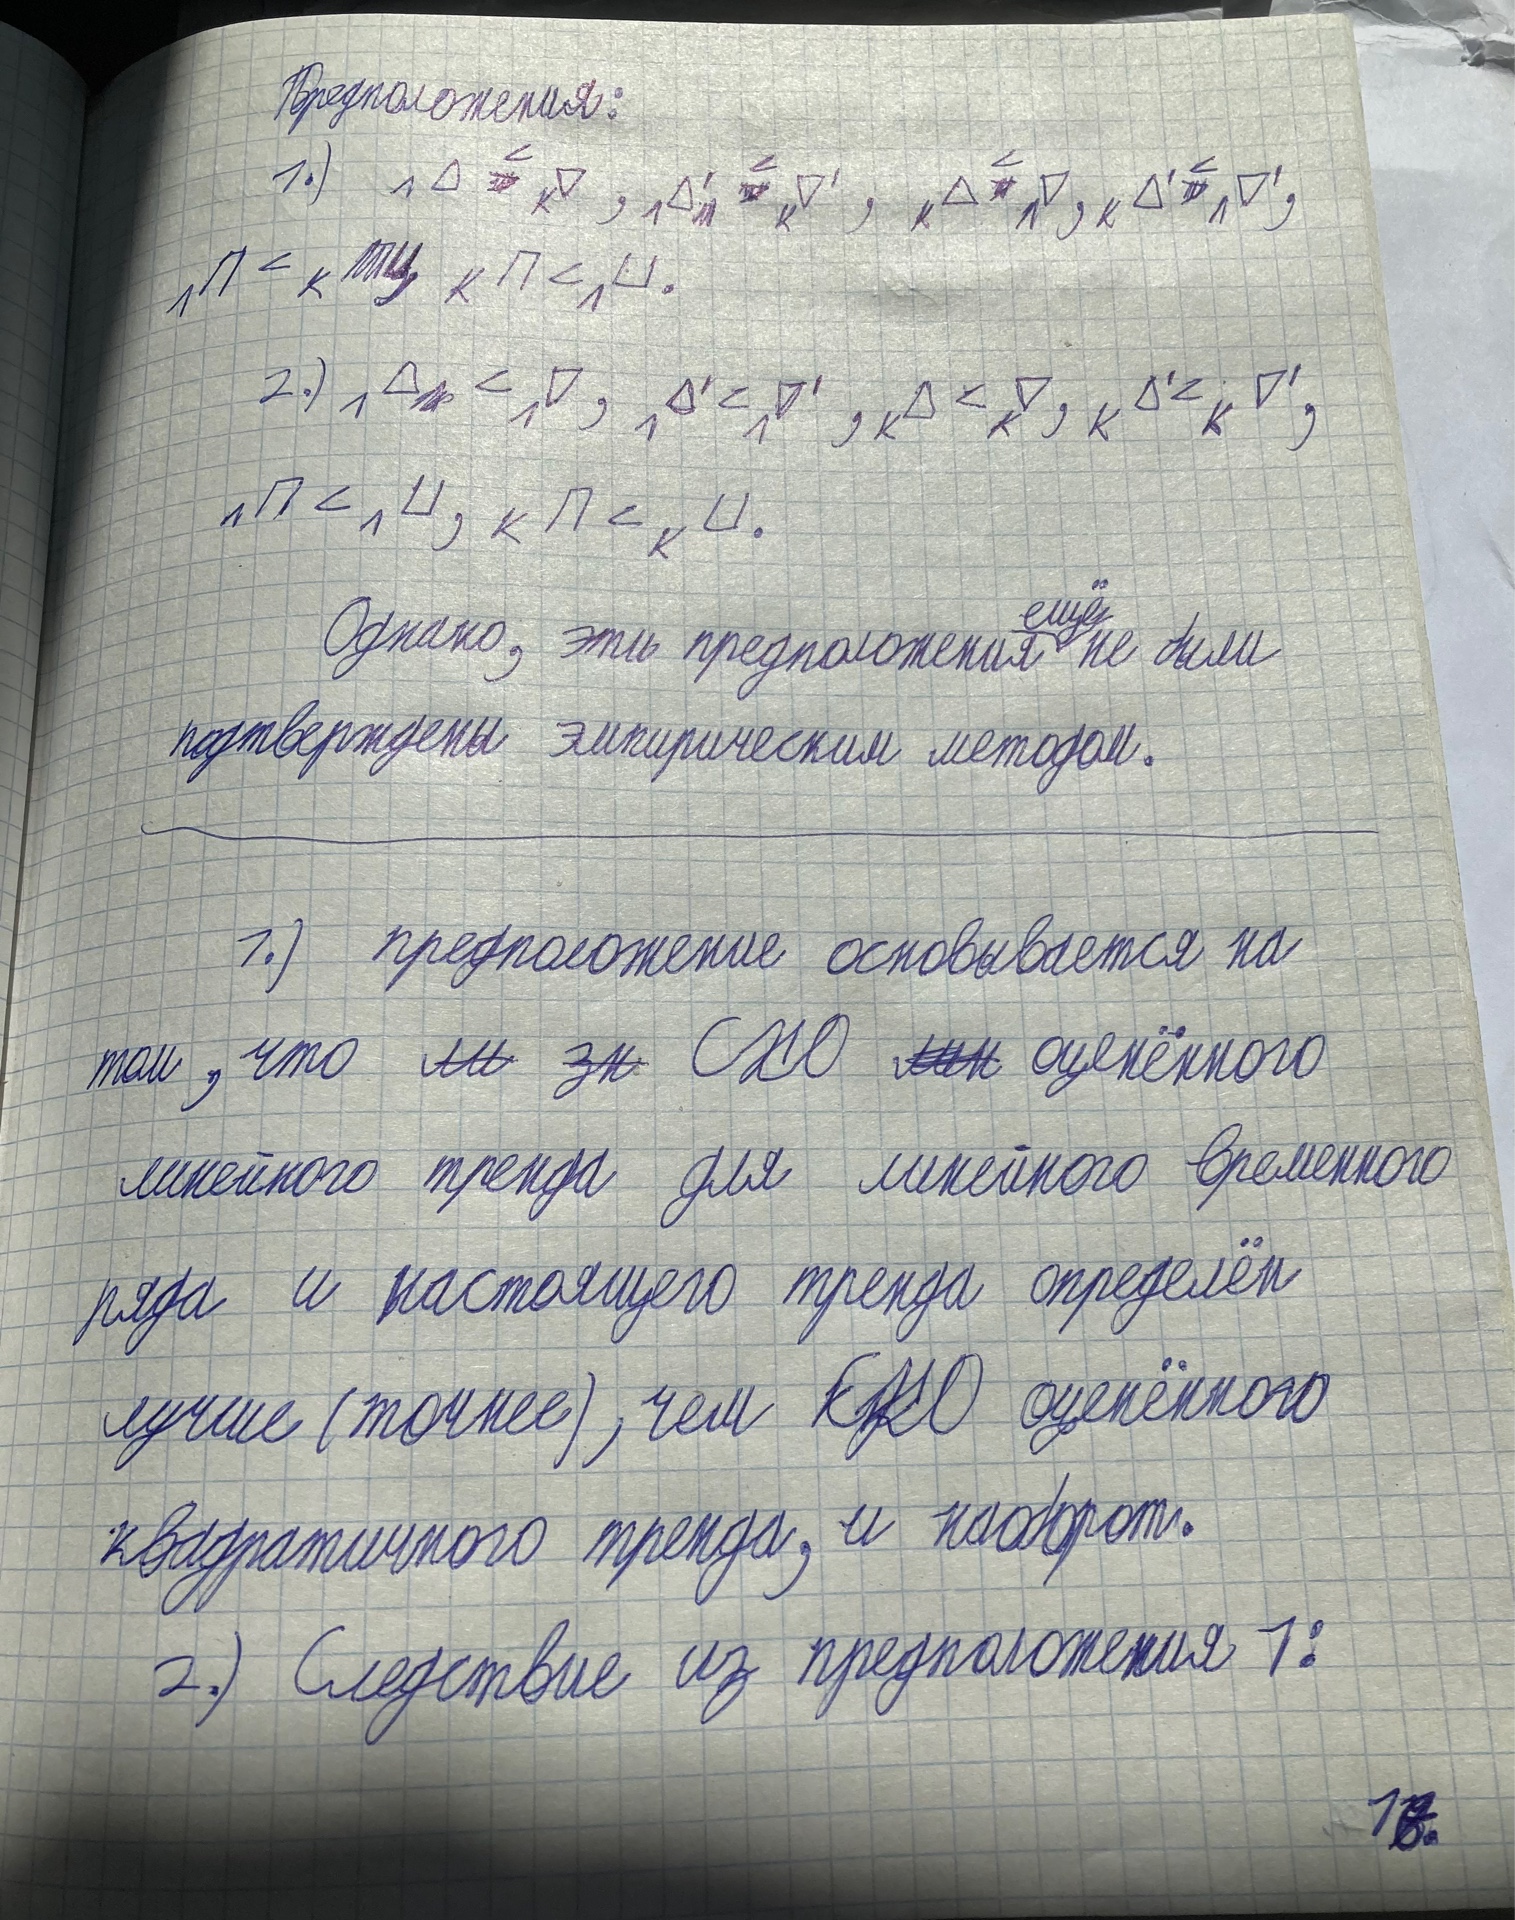 Предположения:
1.) ₁Δ < ₖ∇, ₁Δ' < ₖ∇', ₖΔ < ₁∇, ₖΔ' < ₁∇',
₁П < ₖ⊔, ₖП < ₁⊔.
2.) ₁Δ < ₁∇, ₁Δ' < ₁∇', ₖΔ < ₖ∇, ₖΔ' < ₖ∇',
₁П < ₁⊔, ₖП < ₖ⊔.
Однако, эти предположения ещё не были
подтверждены эмпирическим методом.
1.) предположение основывается на
том, что СКО оценённого
линейного тренда для линейного временного
ряда и настоящего тренда определён
лучше (точнее), чем СКО оценённого
квадратичного тренда, и наоборот.
2.) Следствие из предположения 1: